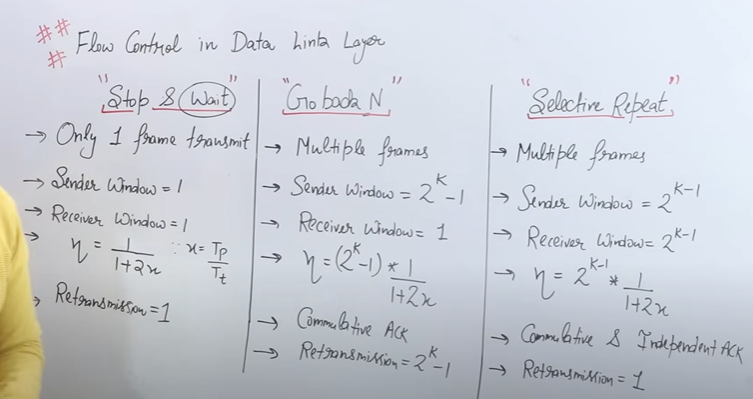 ## Flow Control in Data Link Layer
#
"Stop & Wait"
→ Only 1 frame transmit
→ Sender Window = 1
→ Receiver Window = 1
→ η = 1/(1+2x) ∵ x = Tp/Tt
→ Retransmission = 1
"Go back N"
→ Multiple frames
→ Sender Window = 2^K - 1
→ Receiver Window = 1
→ η = (2^K - 1) * 1/(1+2x)
→ Commulative ACK
→ Retransmission = 2^K - 1
"Selective Repeat"
→ Multiple frames
→ Sender Window = 2^(K-1)
→ Receiver Window = 2^(K-1)
→ η = 2^(K-1) * 1/(1+2x)
→ Commulative & Independent ACK
→ Retransmission = 1